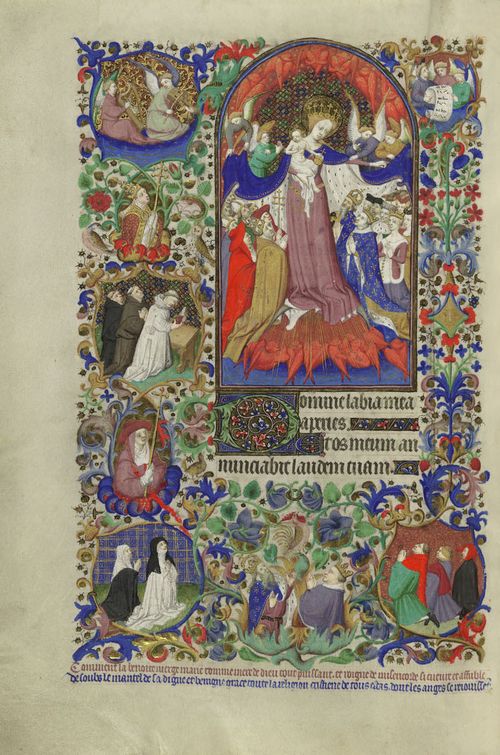 Domine labia mea
aperies.
Et os meum an
nunciabit laudem tuam.
Comment la benoite vierge marie comme mere de dieu tout puissant. et roigne de misericorde si cueuvre et affuble
de soubs le mantel de sa digne et benigne grace toute la religion crestienne de tous estas. dont les anges se reioissẽt